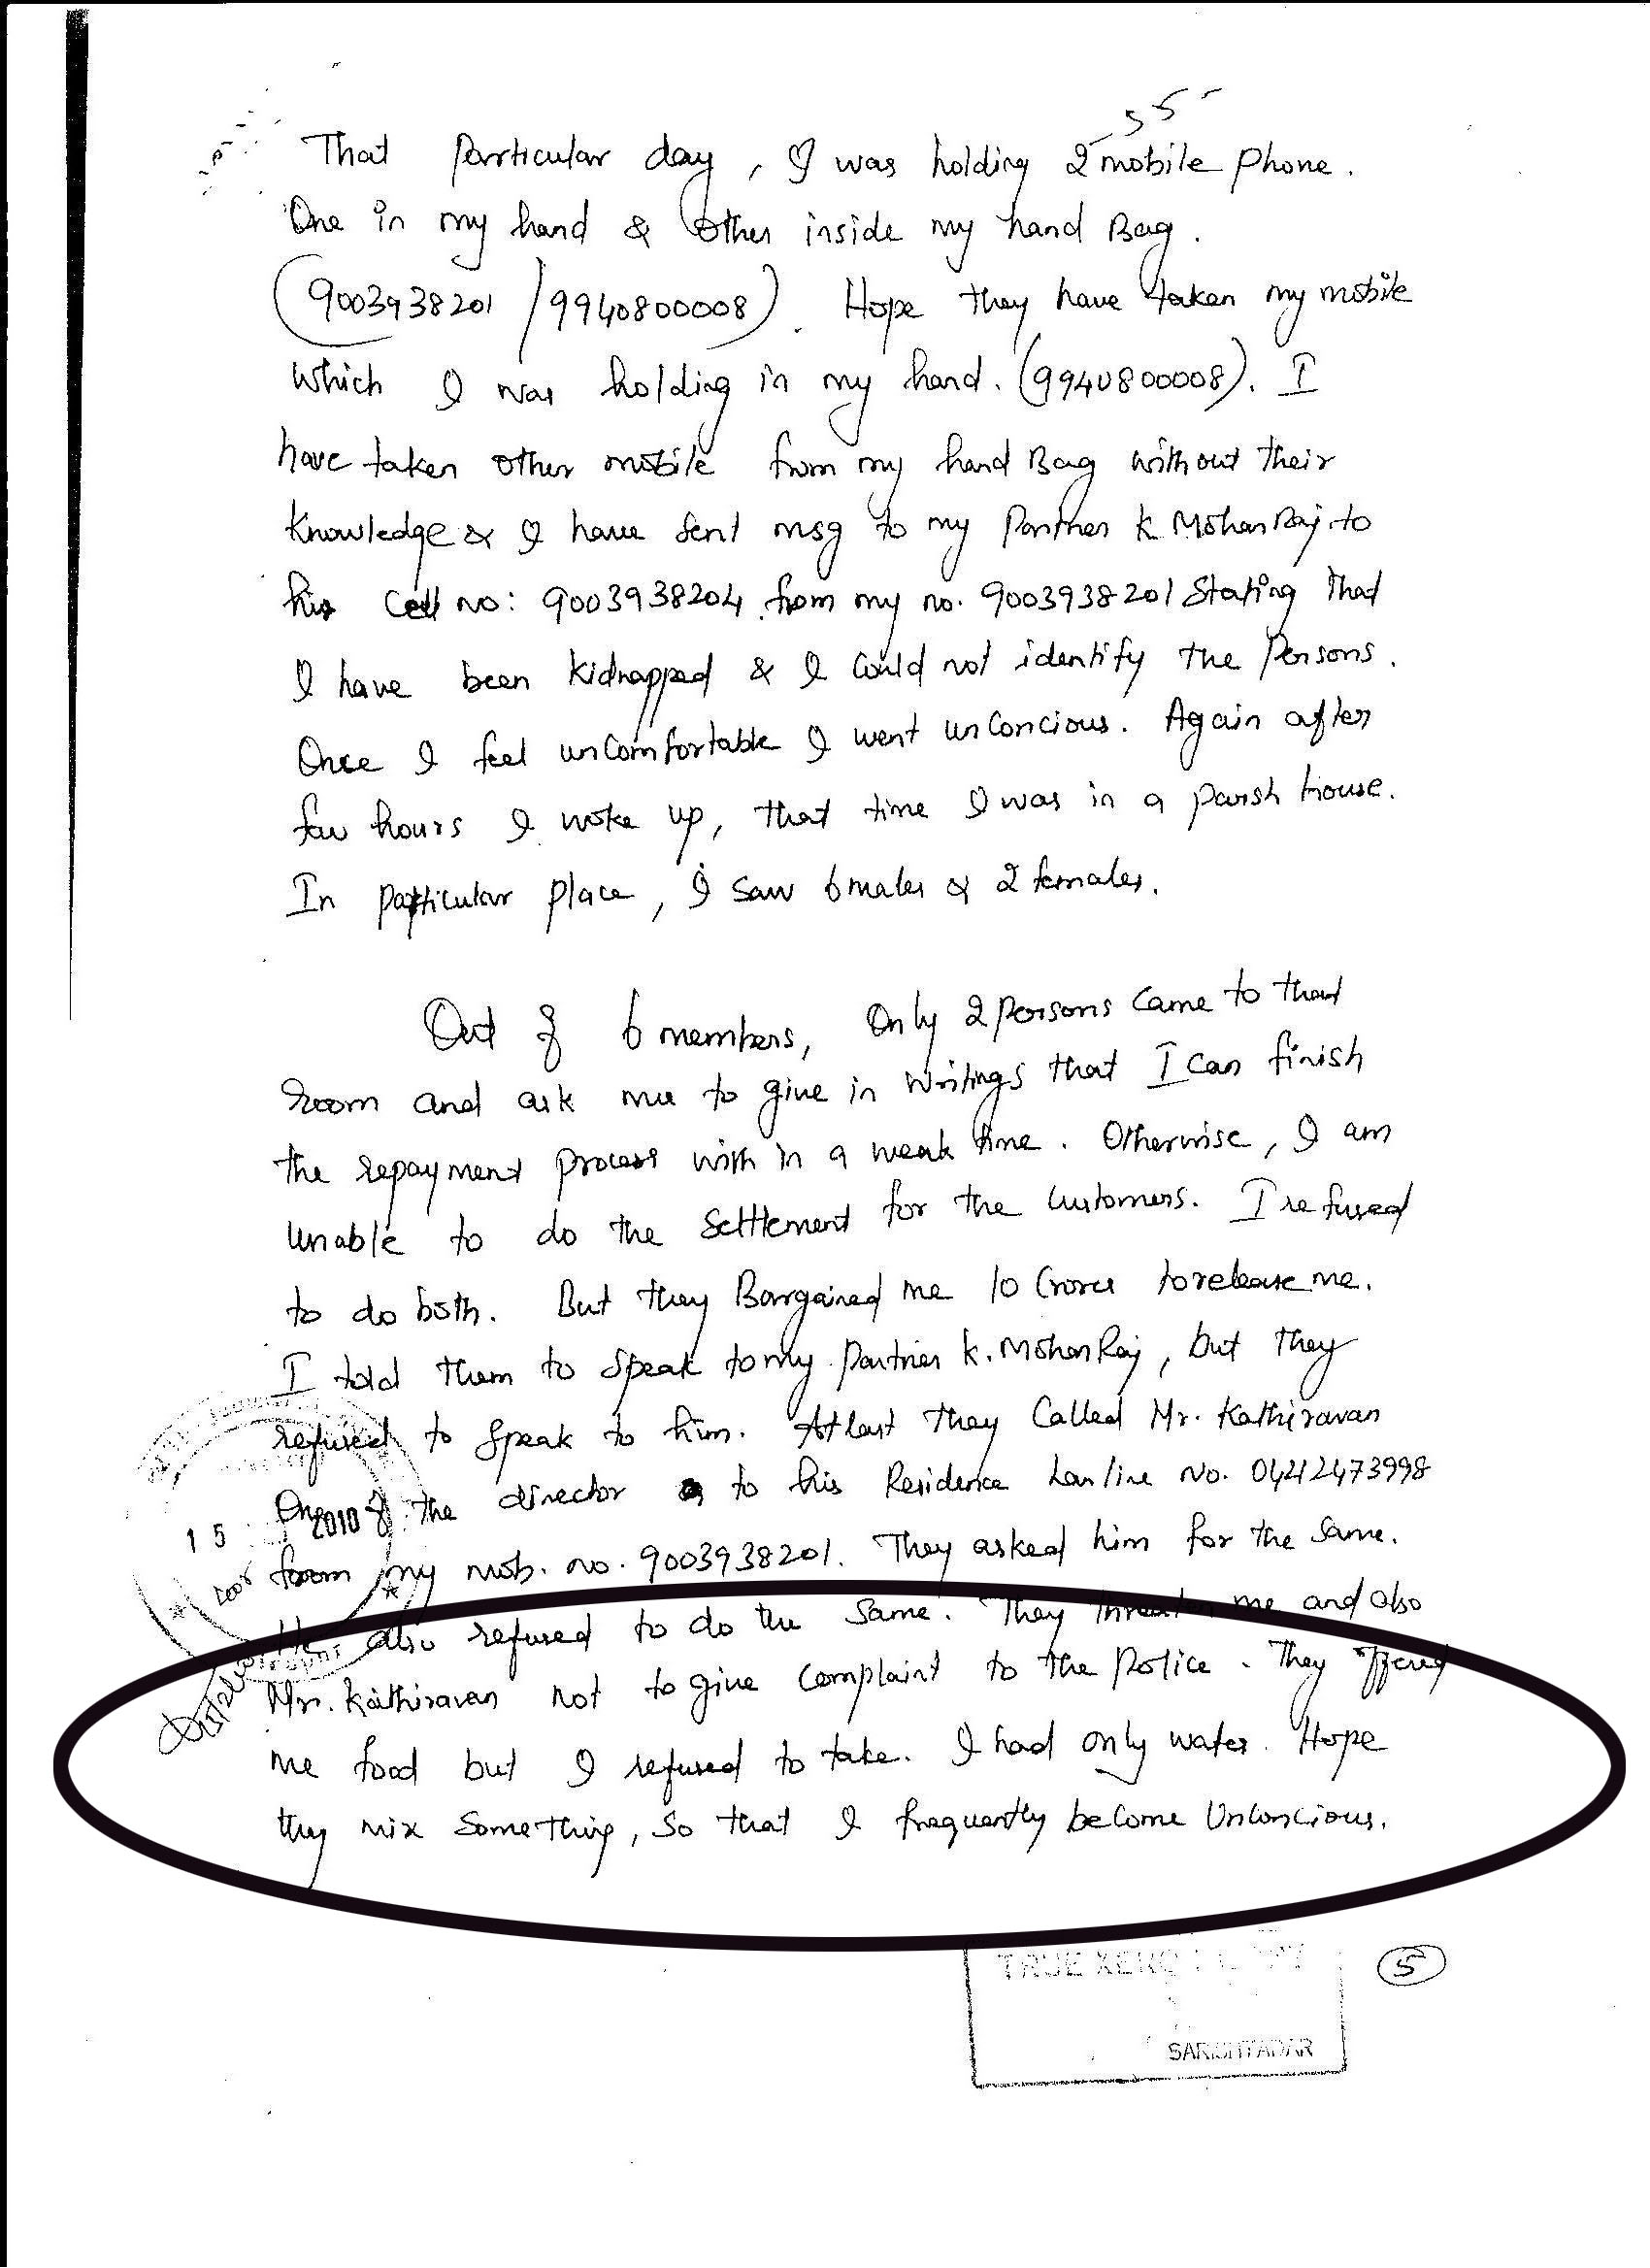 55
That Particular day, I was holding 2 mobile phone.
One in my hand & other inside my hand Bag.
(9003938201 / 9940800008). Hope they have taken my mobile
which I was holding in my hand. (9940800008). I
have taken other mobile from my hand Bag without their
knowledge & I have sent msg to my Partner K Mohan Raj to
his Cell no: 9003938204 from my no. 9003938201 Stating that
I have been kidnapped & I could not identify the Persons.
Once I feel uncomfortable I went unConcious. Again after
few hours I woke up, that time I was in a parish house.
In particular place, I saw 6 males & 2 females.
Out of 6 members, Only 2 persons came to that
room and ask me to give in writings that I can finish
the repayment process with in a week time. Otherwise, I am
unable to do the settlement for the customers. I refused
to do both. But they Bargained me 10 Crores to release me.
I told them to speak to my partner K. Mohan Raj, but they
refused to speak to him. At last they Called Mr. Kathiravan
One of the director to his Residence Lanline No. 04212473998
from my mob. no. 9003938201. They asked him for the same.
He also refused to do the same. They threaten me and also
Mr. Kathiravan not to give Complaint to the Police. They offered
me food but I refused to take. I had only water. Hope
they mix something, so that I frequently become Unconcious.
15 2010
TRUE XEROX COPY
5
SARISHTADAR